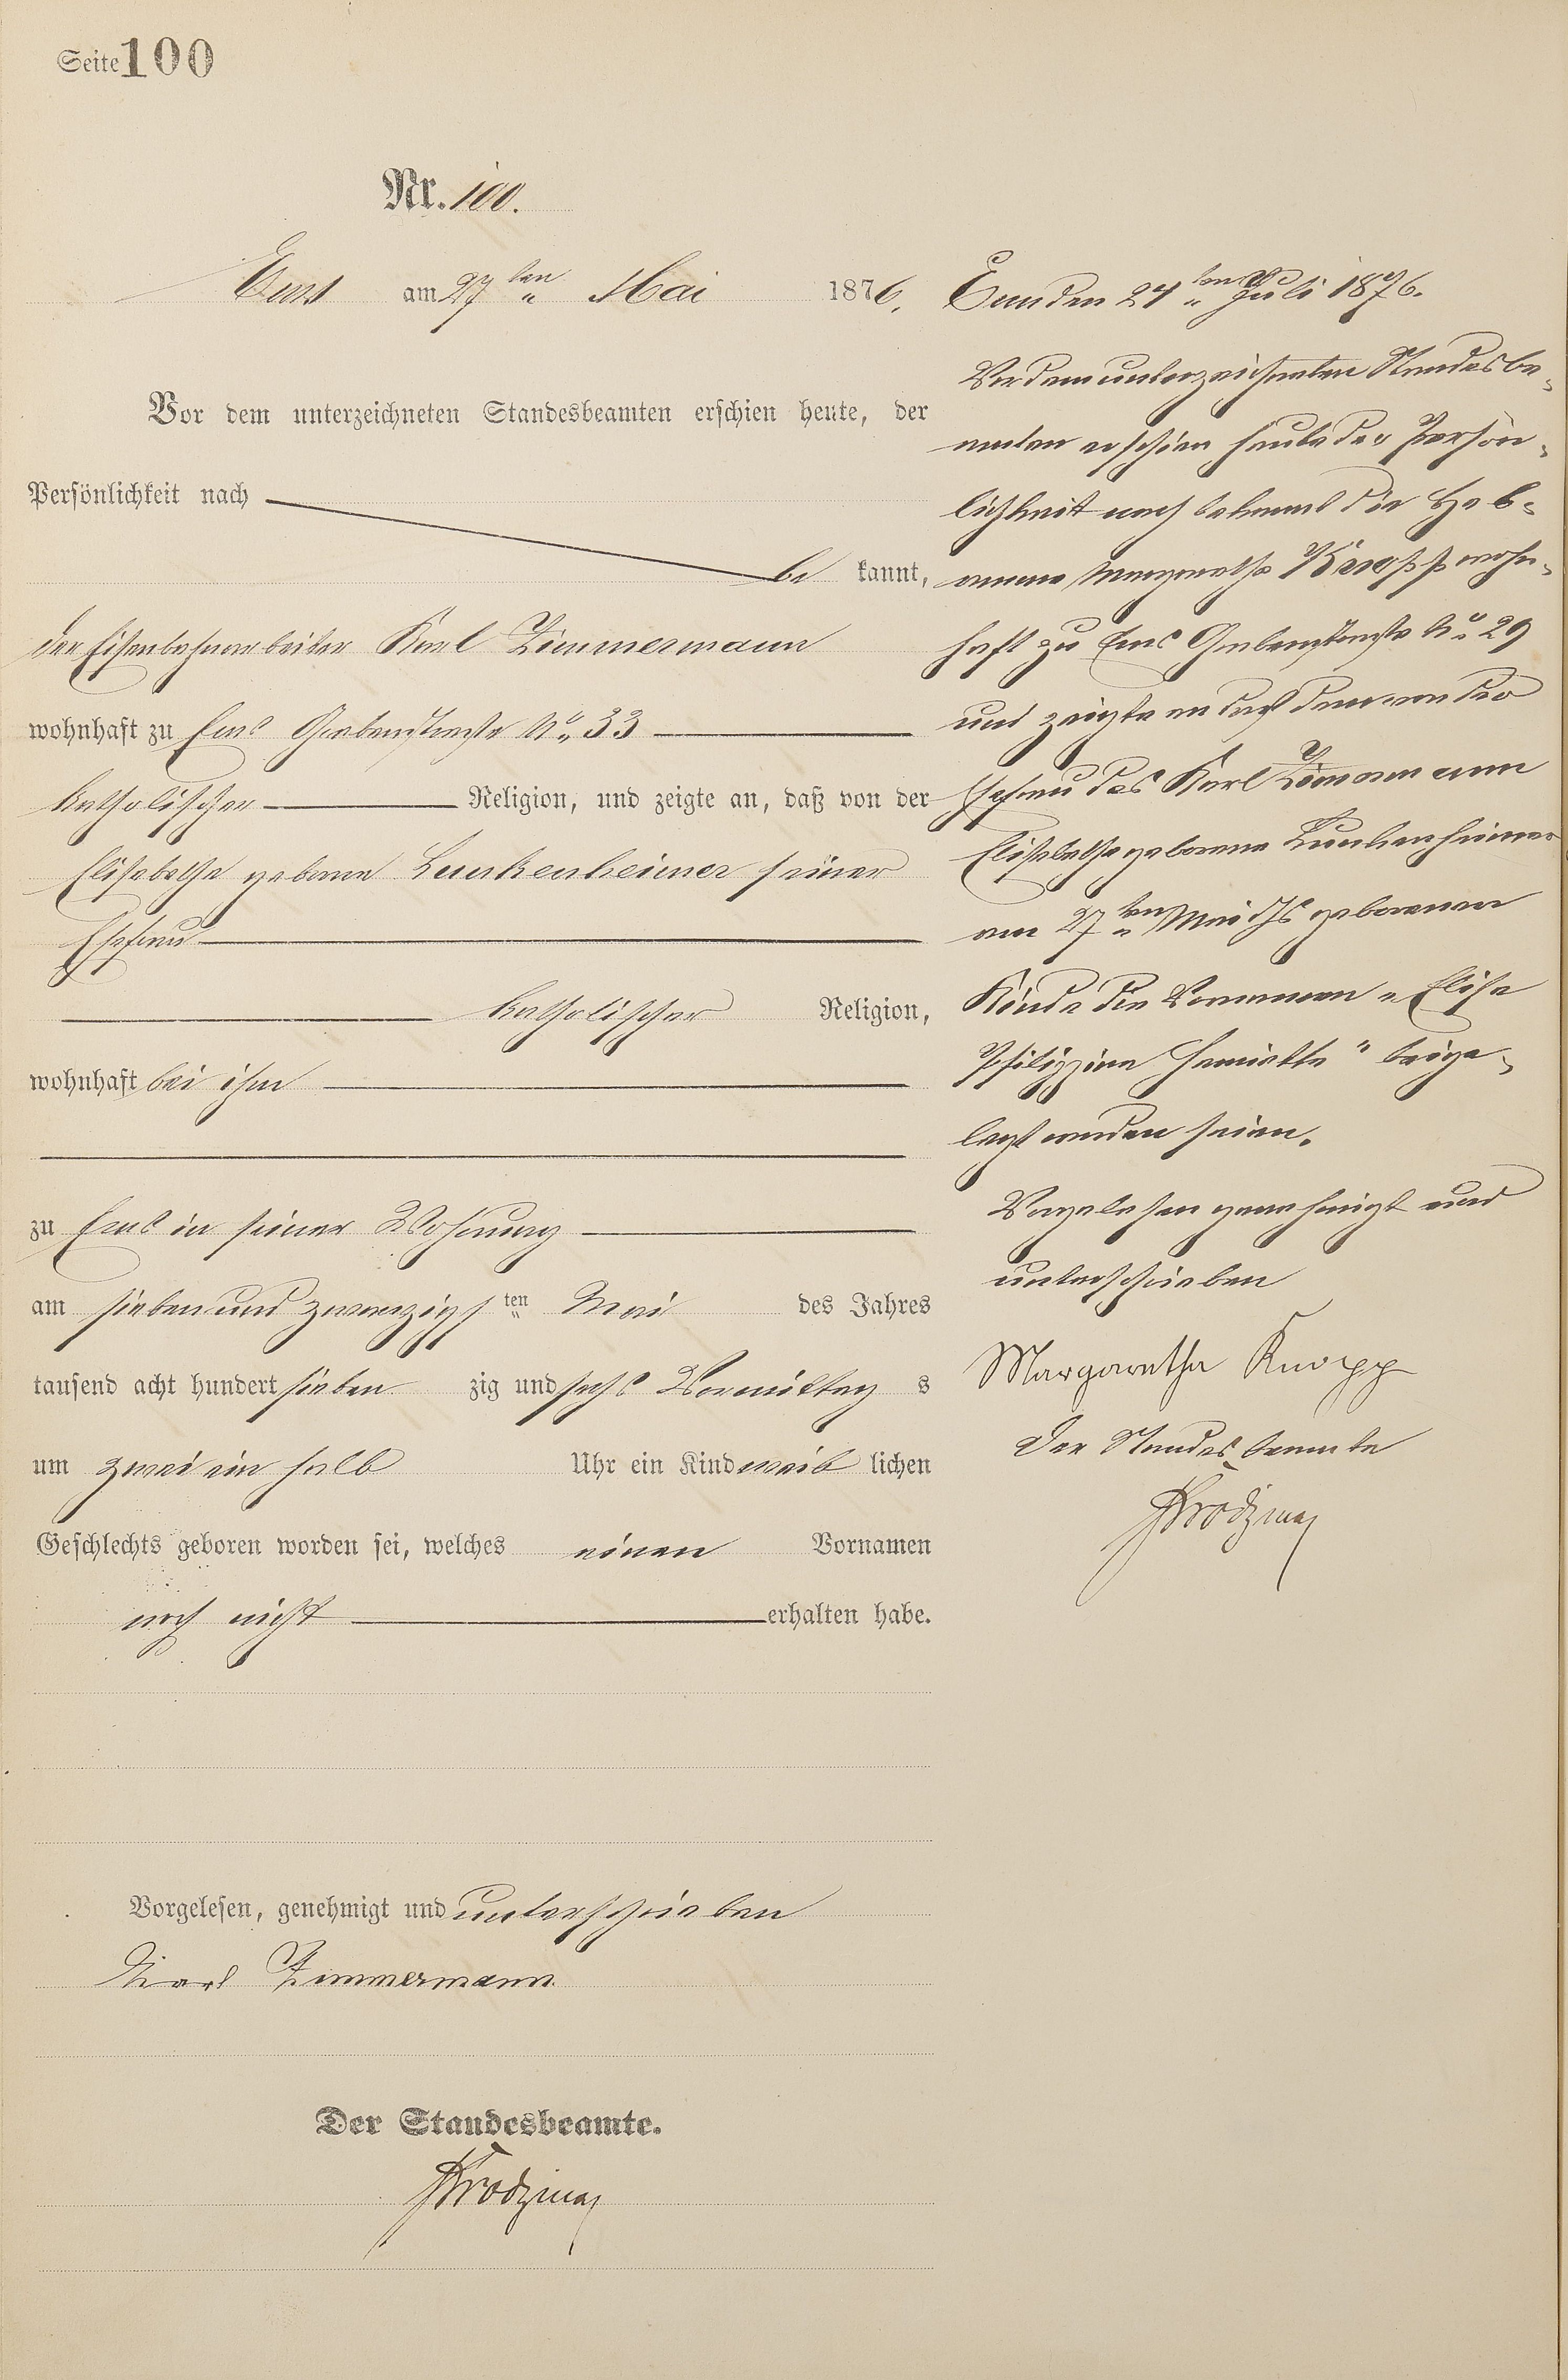 Seite 100
Nr. 100.
Ems am 27ten Mai 1876.
Vor dem unterzeichneten Standesbeamten erschien heute, der
Persönlichkeit nach
be kannt,
der Eisenbahnarbeiter Karl Zimmermann
wohnhaft zu Ems Grabenstraße No. 33
katholischer Religion, und zeigte an, daß von der
Elisabetha geborene Lunkenheimer seiner
Ehefrau
katholischer Religion,
wohnhaft bei ihm
zu Ems in seiner Wohnung
am sieben und zwanzigsten Mai des Jahres
tausend acht hundert sieben zig und sechs Vormittag s
um zwei ein halb Uhr ein Kind weib lichen
Geschlechts geboren worden sei, welches einen Vornamen
noch nicht erhalten habe.
Vorgelesen, genehmigt und unterschrieben
Karl Zimmermann
Der Standesbeamte.
Ems den 24ten Juli 1876.
Vor dem unterzeichneten Standesbe-
amten erschien heute der Persön-
lichkeit nach bekannt die Heb-
amme Margaretha Knopp wohn-
haft zu Ems Grabenstraße No. 29
und zeigte an daß dem von der
Ehefrau des Karl Zimmermann
Elisabetha geborene Lunkenheimer
am 27ten Mai d Js geborenen
Kinde die Vornamen „Elisa
Philippine Henriette" beige-
legt worden seien.
Vorgelesen genehmigt und
unterschrieben
Margaretha Knopp
Der Standesbeamte